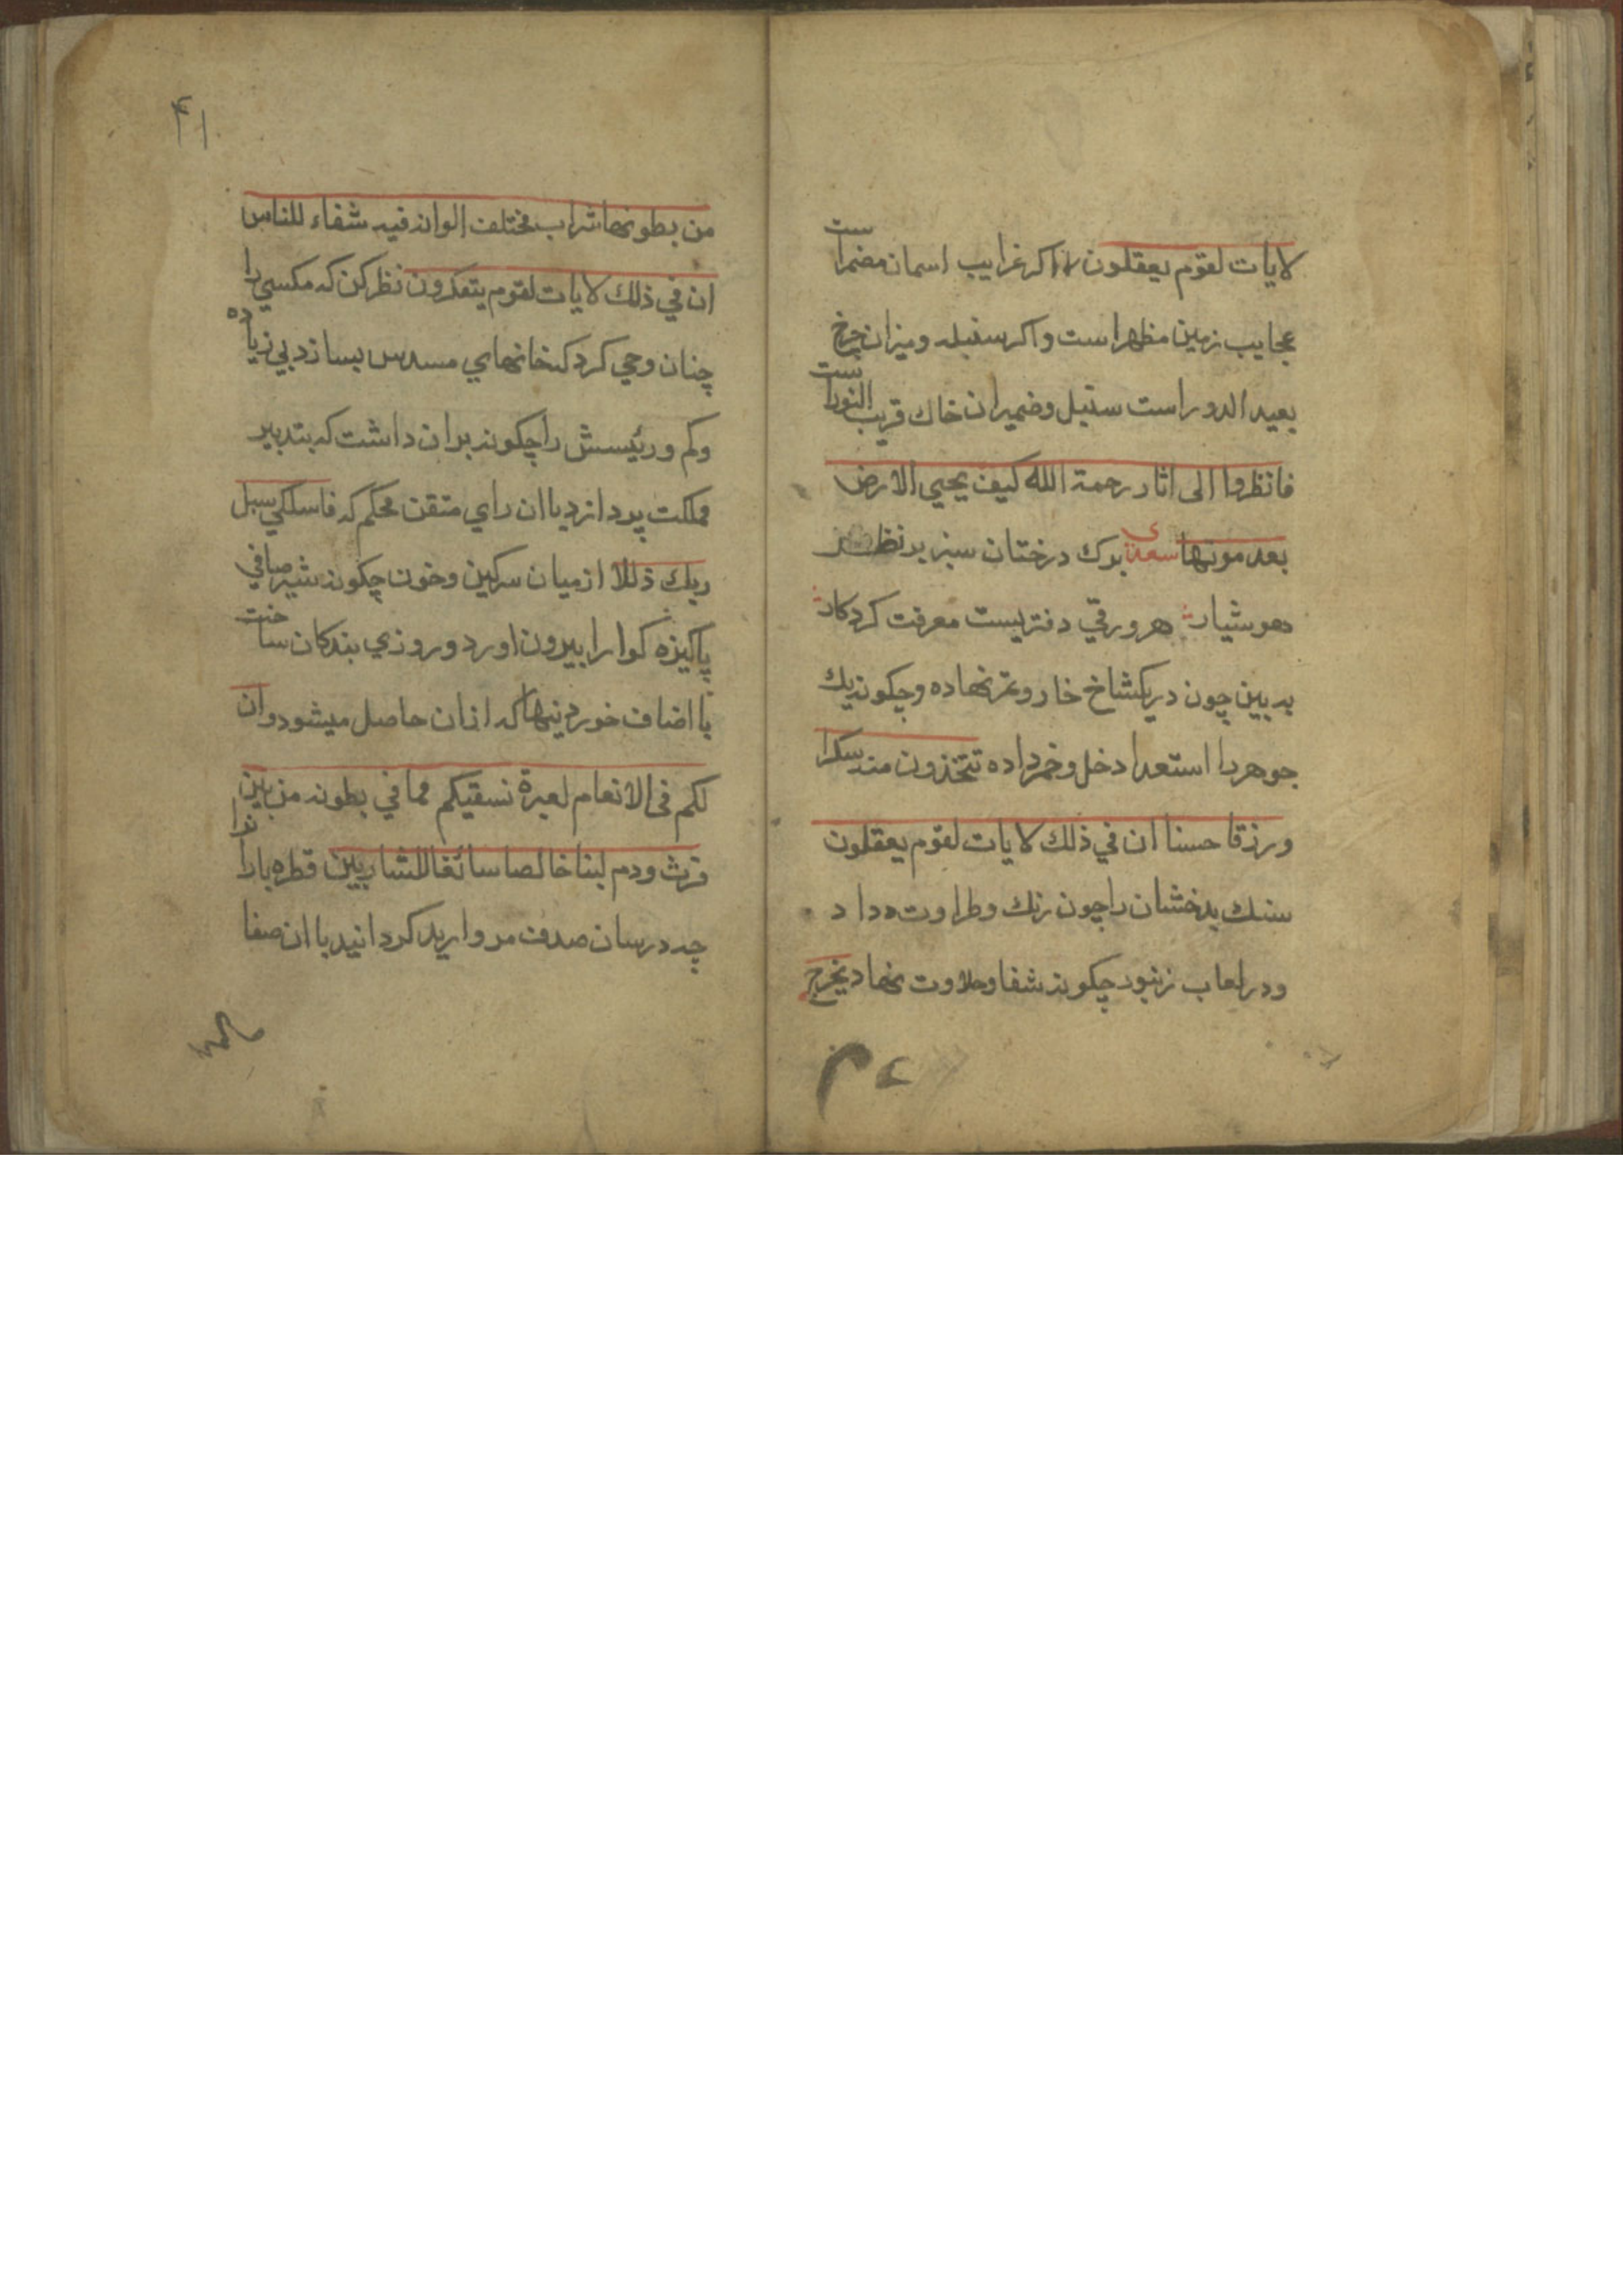 لایات لقوم یعقلون اکر غرایب اسمان مضمراست
عجایب زمین مظهر است واکر سنبله ومیزان چرخ
بعید الدوراست سنبل وضمیران خاك قریب النوراست
فانظروا الی اثار رحمة الله کیف یحیي الارض
بعد موتها سعدی برك درختان سبز بر نظر
هوشیار هر ورقي دفتریست معرفت کردکار
به بین چون در یکشاخ خار وتمر نهاده وچکونه یك
جوهر را استعداد خل وخمر داده تتخذون منه سکرا
ورزقا حسنا ان في ذلك لایات لقوم یعقلون
سنك بدخشان را چون رنك وطراوت داد
ودر لعاب زنبور چکونه شفا وحلاوت نهاد یخرج
۴۱
من بطونها شراب مختلف الوانه فیه شفاء للناس
ان في ذلك لایات لقوم یتفکرون نظر کن که مکسي را
چنان وحي کرد که خانهاي مسدس بسازد بي زیاده
وکم ورئیسش را چکونه بران داشت که بتدبیر
مملکت پردازد باان راي متقن محکم که فاسلکي سبل
ربك ذللا از میان سرکین وخون چکونه شیر صافي
پاکیزه کوارا بیرون اورد وروزي بندکان ساخت
با اضاف خوردنیها که ازان حاصل میشود وان
لکم فی الانعام لعبرة نسقیکم مما في بطونه من بین
فرث ودم لبنا خالصا سائغا للشاربین قطره بارانرا
چه درسان صدف مروارید کردانید باان صفا